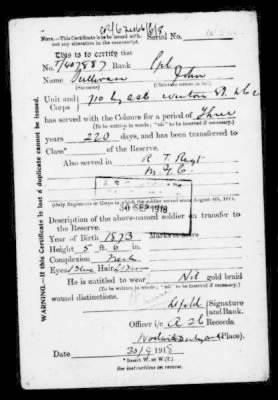 NOTE.—This Certificate is to be issued without any alteration in the manuscript.
Serial No.
This is to certify that
No. T/407887 Rank Cpl
Name Sullivan John
(Surname) (Christian Name)
Unit and Corps
has served with the Colours for a period of Three
(To be written in words; "nil" to be inserted if necessary).
years 220 days, and has been transferred to
Class * of the Reserve.
Also served in R. T. Regt
M. F. C.
30 SEP 1918
(Only Regiments or Corps in which the soldier served since August 4th, 1914,
Description of the above-named soldier on transfer to the Reserve.
Year of Birth 1873 Marks or Scars
Height 5 ft. 6 in.
Complexion Fresh
Eyes Blue Hair
He is entitled to wear Nil gold braid
(To be written in words; "nil" to be inserted if necessary).
wound distinctions.
Signature and Rank.
Officer i/c A S C Records.
Woolwich Dockyard (Place).
Date 30/9/1918
* Insert W. or W.(T.)
See instructions on reverse.
WARNING.—If this Certificate is lost a duplicate cannot be issued.